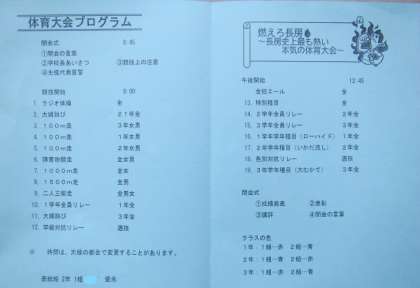 体育大会プログラム
開会式 8:45
①開会の言葉
②学校長あいさつ ③競技上の注意
④生徒代表宣誓
競技開始 9:00
1. ラジオ体操 全
2. 大縄跳び 21年全
3. 100m走 3年女男
4. 100m走 1年女男
5. 100m走 2年女男
6. 障害物競走 全女男
7. 1000m走 全女
8. 1500m走 全男
9. 二人三脚走 全男女
10. 1学年全員リレー 1年全
11. 大縄跳び 3年全
12. 学級対抗リレー 選抜
※ 時間は、天候の都合で変更することがあります。
表紙絵 2年 1組
燃えろ長房
～長房史上最も熱い
本気の体育大会～
午後開始 12:45
合同エール 全
13. 特別種目 全
14. 2学年全員リレー 2年全
15. 3学年全員リレー 3年全
16. 1学年学年種目(ローハイド) 1年全
17. 2年学年種目(いかだ流し) 2年全
18. 色別対抗リレー 選抜
19. 3年学年種目(大むかで) 3年全
閉会式
①成績発表 ②表彰
③講評 ④閉会の言葉
クラスの色
1年:1組―赤 2組―青
2年:1組―赤 2組―青
3年:1組―赤 2組―青